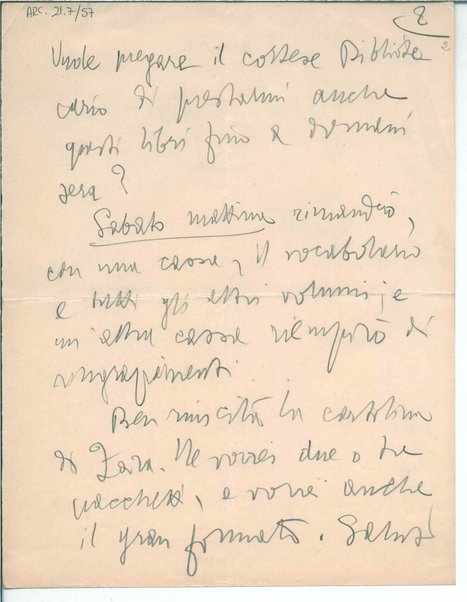 ARC. 21.7/57
8
2
Vuole pregare il cortese Bibliote
cario di prestarmi anche
questi libri fino a domani
sera?
Sabato mattina rimanderò,
con una cassa, il vocabolario
e tutti gli altri volumi; e
un'altra cassa riempirò di
ringraziamenti.
Ben riuscita la cartolina
di Zara. Ne vorrei due o tre
pacchetti, e vorrei anche
il gran formato. Saluti